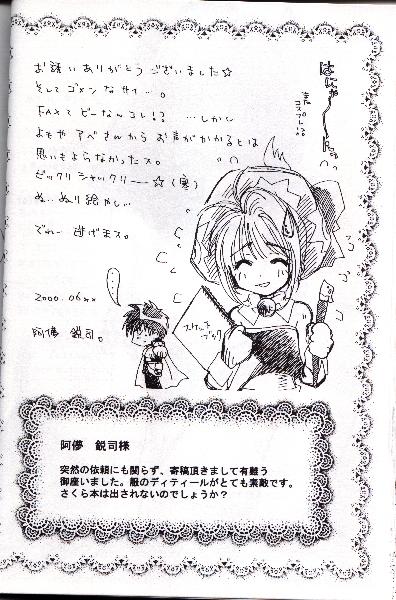 お誘いありがとうございました☆
そしてゴメンなサイ…。
FAXでビーなんスし!? …しかし
よもやアベさんからお声がかかるとは
思いもよらなかったス。
ビックリシャックリー☆(寒)
ぬ…ぬり絵やし…
でわー 逃げまス。
2000.06××
阿倍 鋭司。
はにゃーん
また
コスプレ!?
…。
スケッチ
ブック
阿儚 鋭司様
突然の依頼にも関らず、寄稿頂きまして有難う
御座いました。服のディティールがとても素敵です。
さくら本は出されないのでしょうか?